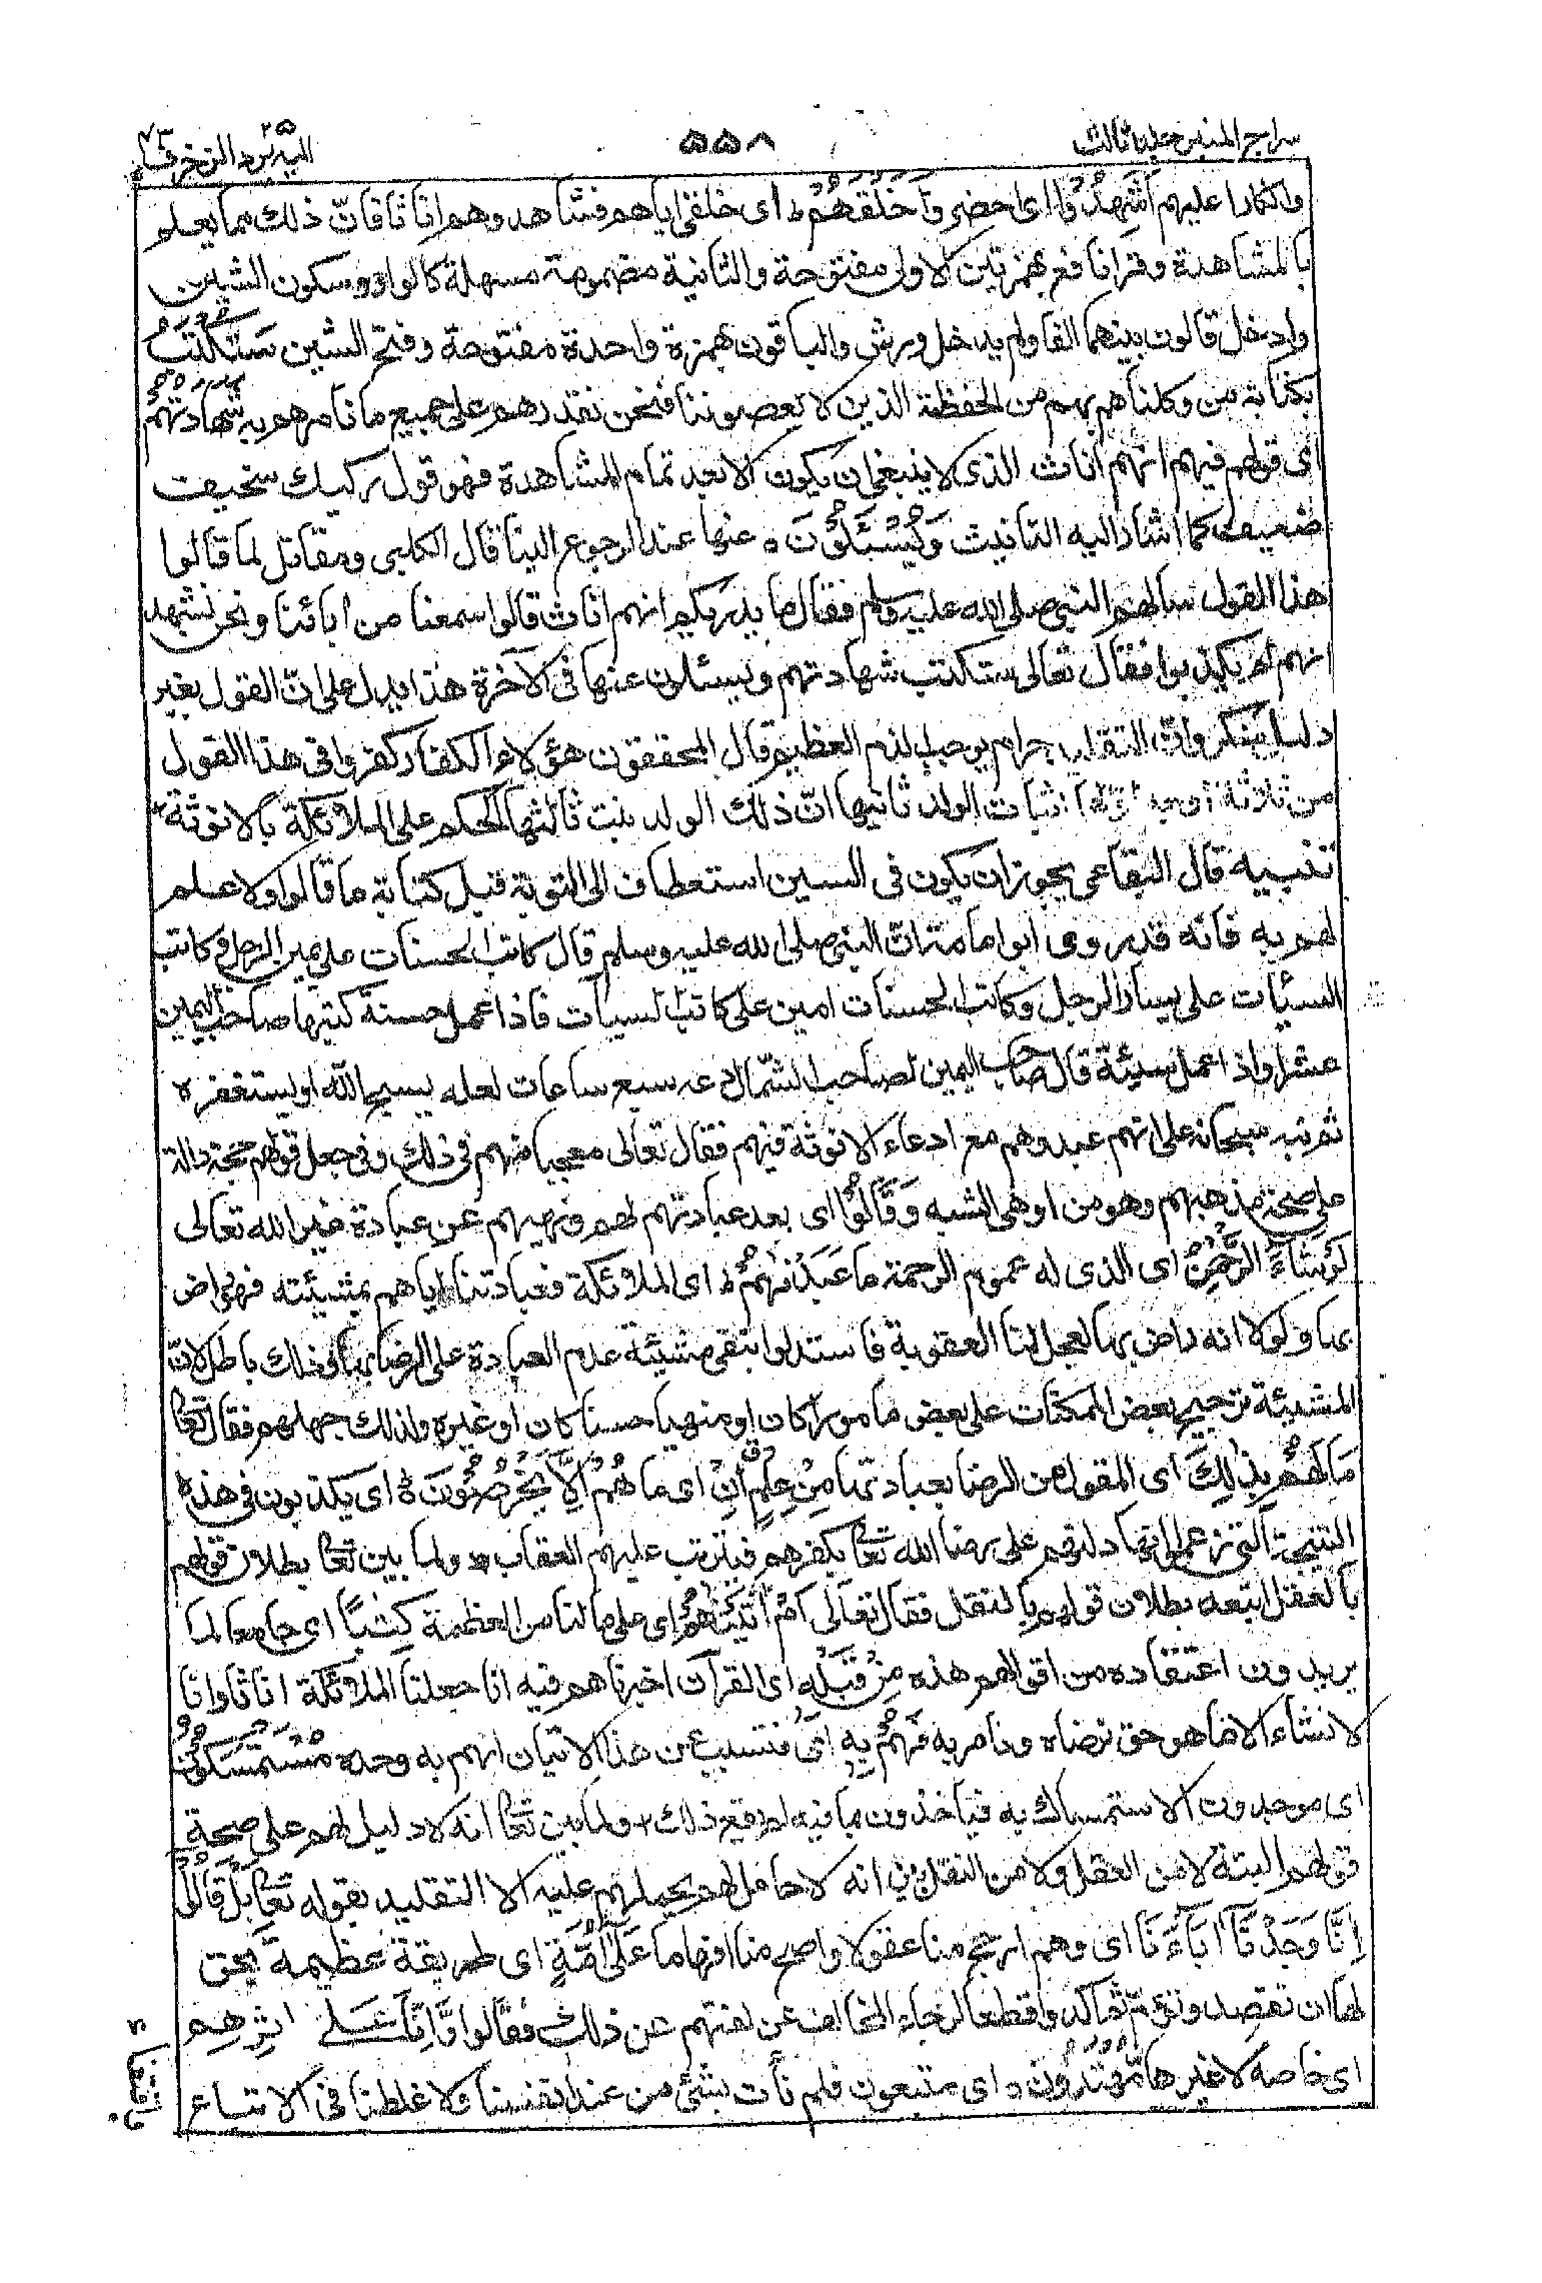 سراج المنير جلد ثالث
۵۵۸
اليه يرد ۲۵ الزخرف ۴۳
وانكارا عليهم اَشَهِدُوْا اى حضروا خَلْقَهُمْ ط اى خلقى اياهم فشاهدوهم اناثا فان ذلك مما يعلم
بالمشاهدة وقرا نافع بهمزتين الاولى مفتوحة والثانية مضمومة مسهلة كالواو وسكون الشين
وادخل قالون بينهما الفا ولم يدخل ورش والباقون بهمزة واحدة مفتوحة وفتح الشين سَتُكْتَبُ
بكتابة من وكلناهم بهم من الحفظة الذين لا يعصوننا فنحن نقدرهم على جميع ما نامرهم به شَهَادَتُهُمْ
اى قولهم فيهم انهم اناث الذى لا ينبغى ان يكون الا بعد تمام المشاهدة فهو قول ركيك سخيف
ضعيف كما اشار اليه التانيث وَيُسْئَلُوْنَ ه عنها عند الرجوع الينا قال الكلبى ومقاتل لما قالوا
هذا القول سالهم النبى صلى الله عليه وسلم فقال ما يدريكم انهم اناث قالوا سمعنا من اٰبائنا ونحن نشهد
انهم لم يكذبوا فقال تعالى ستكتب شهادتهم ويسئلون عنها فى الاٰخرة هذا يدل على انّ القول بغير
دليل منكر وان التقليد حرام يوجب الذم العظيم قال المحققون هؤلاء الكفار كفروا فى هذا القول
من ثلاثة اوجه اولها اثبات الولد ثانيها انّ ذلك الولد بنت ثالثها الحكم على الملائكة بالانوثة
تنبيه قال البقاعى يجوز ان يكون فى السين استعطاف الى التوبة قبل كتابة ما قالوا ولا علم
لهم به فانه قد روى ابو امامة انّ النبى صلى الله عليه وسلم قال كاتب الحسنات على يمين الرجل وكاتب
السيئات على يسار الرجل وكاتب الحسنات امين على كاتب السيئات فاذا عمل حسنة كتبها صاحب اليمين
عشرا واذا عمل سيئة قال صاحب اليمين لصاحب الشمال دعه سبع ساعات لعله يسبح الله او يستغفره
ثم نبه سبحانه على انهم عبدوهم مع ادعاء الانوثة فيهم فقال تعالى معجبا منهم فى ذلك وفى جعل قولهم حجة دالة
على صحة مذهبهم وهو من اوهى الشبه وَقَالُوْا اى بعد عبادتهم لهم ونهيهم عن عبادة غير الله تعالى
لَوْ شَآءَ الرَّحْمٰنُ اى الذى له عموم الرحمة مَا عَبَدْنٰهُمْ ط اى الملائكة فعبادتنا اياهم بمشيئته فهو راض
بها ولولا انه راض بها لعجل لنا العقوبة فاستدلوا بنفى مشيئة عدم العبادة على الرضا بها وذلك باطل لان
المشيئة ترجيح بعض الممكنات على بعض مامورا كان او منهيا حسنا كان او غيره ولذلك جهلهم فقال تعا
مَا لَهُمْ بِذٰلِكَ اى المقول من الرضا بعبادتها مِنْ عِلْمٍ اِنْ اى ما هُمْ اِلَّا يَخْرُصُوْنَ ه اى يكذبون فى هذه
النتيجة التى زعموا انها دلتهم على رضا الله تعا بكفرهم فيترتب عليهم العقاب ولما بين تعا بطلان قولهم
بالعقل اتبعه بطلان قولهم بالنقل فقال تعالى اَمْ اٰتَيْنٰهُمْ اى على مالنا من العظمة كِتٰبًا اى جامعا لما
يريدون اعتقاده من اقوالهم هذه مِنْ قَبْلِهٖ اى القراٰن اخبرناهم فيه انا جعلنا الملائكة اناثا وانا
لا نشاء الا ما هو حق نرضاه ونامر به فَهُمْ بِهٖ اى فتسبب عن هذا الاتيان انهم به وحده مُسْتَمْسِكُوْنَ
اى موجدون الاستمساك به فياخذون بما فيه لم يقع ذلك ولما بين تعا انه لا دليل لهم على صحة
قولهم البتة لا من العقل ولا من النقل بين انه لا حامل لهم يحملهم عليه الا التقليد بقوله تعا بَلْ قَالُوْا
اِنَّا وَجَدْنَآ اٰبَآءَنَا اى وهم ارجح منا عقولا واصح منا افهاما عَلٰٓى اُمَّةٍ اى طريقة عظيمة يحق
لها ان تقصد وتؤم ثم اكدوا قطعا لرجاء المخالف عن لفتهم عن ذلك فقالوا وَّاِنَّا عَلٰى اٰثٰرِهِمْ
اى خاصة لا غيرها مُهْتَدُوْنَ ه اى متبعون فلم نأت بشئ من عند انفسنا ولا غلطنا فى الاتباع